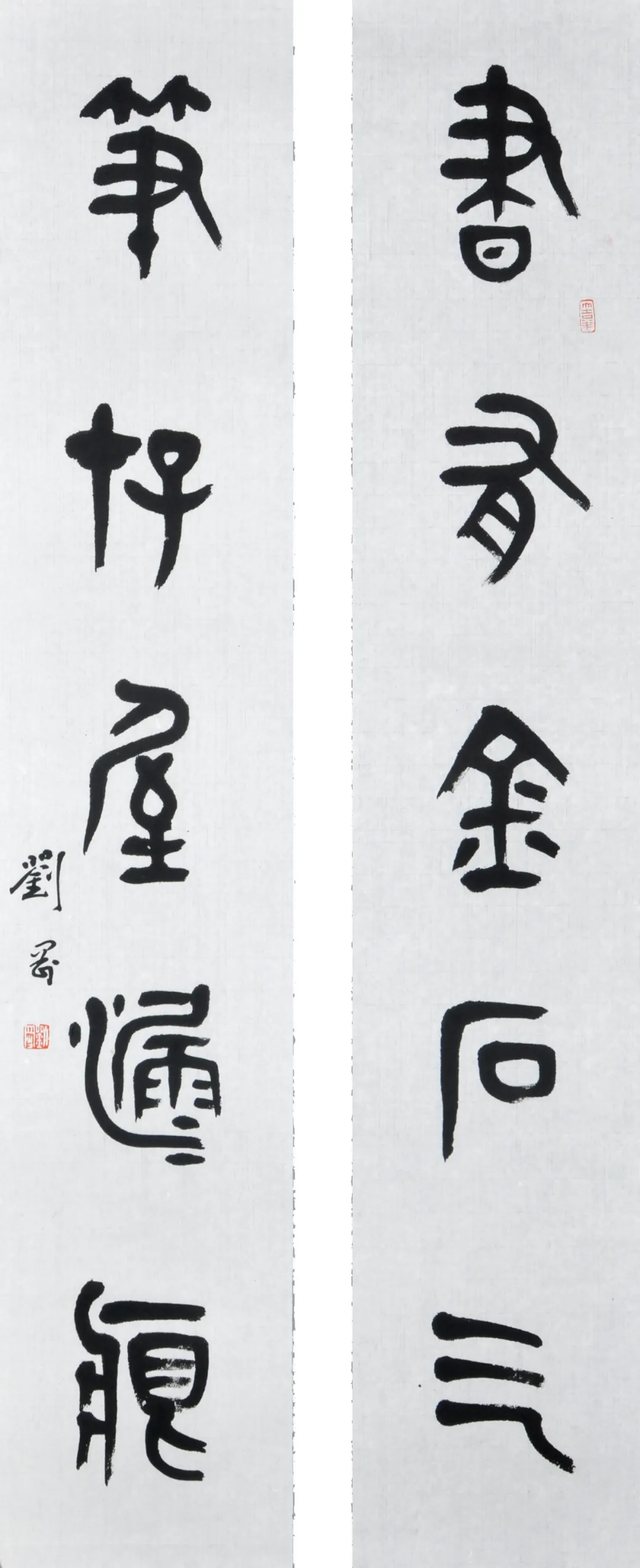 書有金石气
筆存屋漏痕
劉